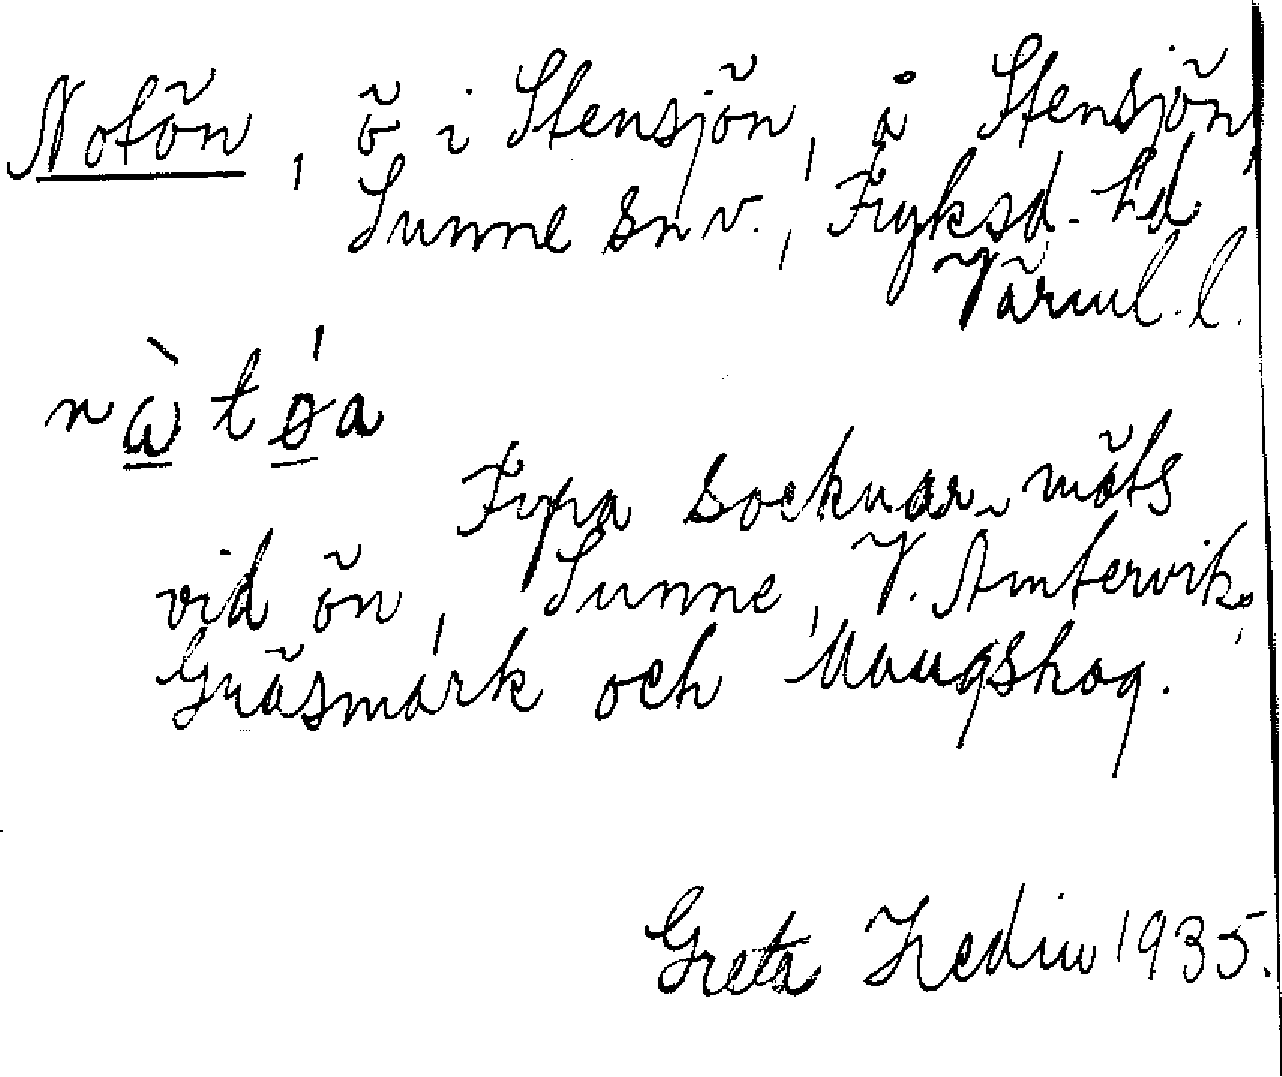 Notön, ö i Stensjön, å Stensjön,
Sunne snv., Fryksd. hd
Värml. l.
nàtǿa
Fyra socknar mäts
vid ön, Sunne, V. Ämtervik,
Gräsmark och Mangskog.
Greta Hedin 1935.